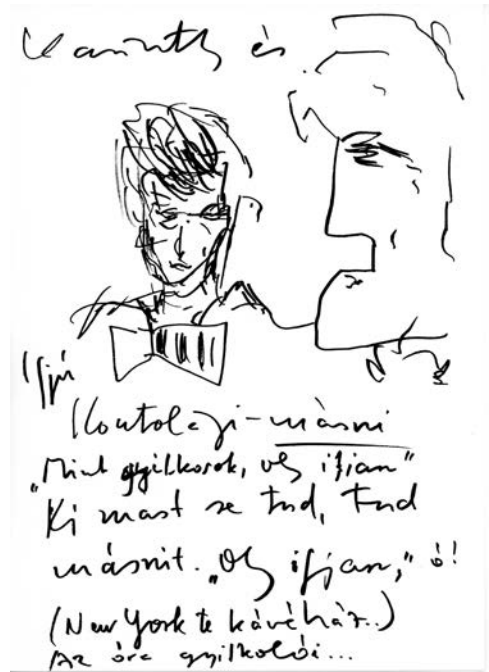 Karinthy és
Ifjú
Kosztolányi-másni
„Mint gyilkosok, oly ifjan”
Ki mást se tud, tud
másnit. „Oly ifjan,” ó!
(New York te kávéház..)
Az óra gyilkolói...